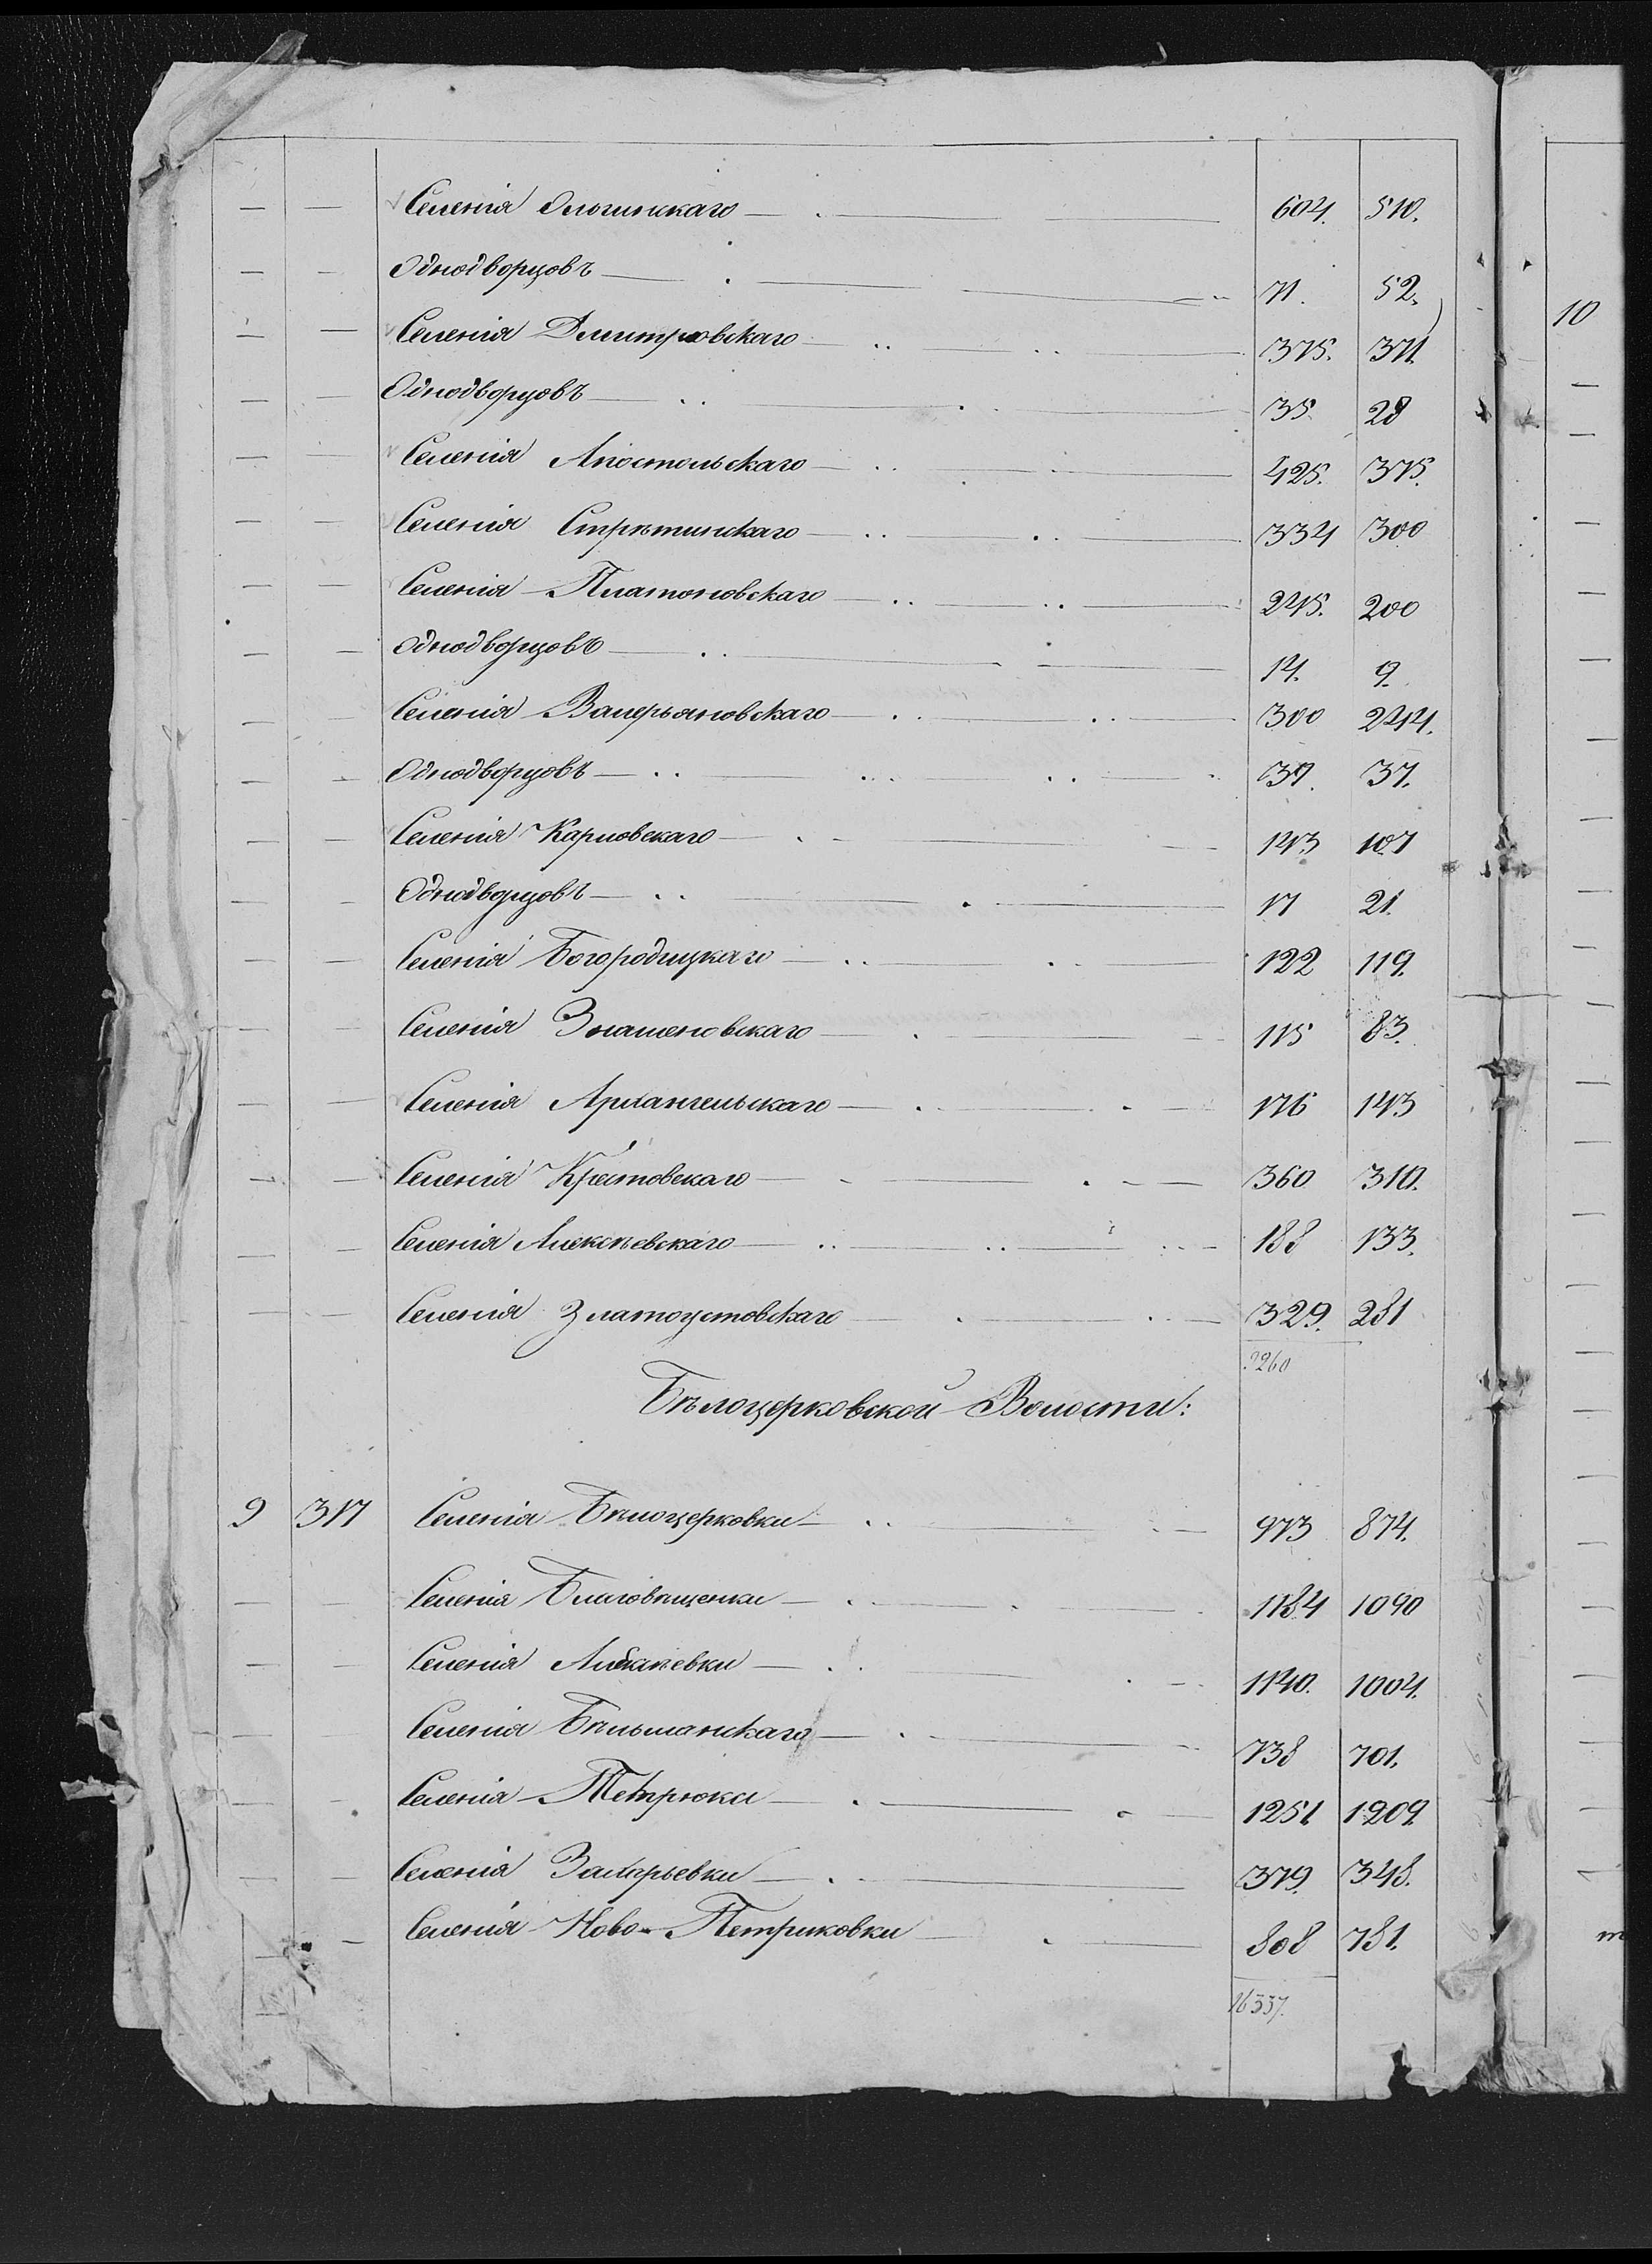 — — Селенія Ольгинскаго — 604. 510.
— — Однодворцовъ — 71. 52.
— — Селенія Дмитровскаго — 375. 371.
— — Однодворцовъ — 35 28
— — Селенія Апостольскаго — 425. 375.
— — Селенія Стрѣтинскаго — 334 300
— — Селенія Платоновскаго — 245. 200
— — Однодворцовъ — 14. 9.
— — Селенія Валерьяновскаго — 300 244.
— — Однодворцовъ — 39. 37.
— — Селенія Карловскаго — 143 107
— — Однодворцовъ — 17 21.
— — Селенія Богородицкаго — 122 119.
— — Селенія Знаменовскаго — 115 83.
— — Селенія Архангельскаго — 176 143
— — Селенія Крестовскаго — 360 310.
— — Селенія Алексѣевскаго — 188 133.
— — Селенія Златоустовскаго — 329. 281
260
Бѣлоцерковской Волости:
9 317 Селенія Бѣлоцерковки — 973 874.
— — Селенія Благовѣщенки — 1184 1090
— — Селенія — 1140. 1004.
— — Селенія Бѣльманскаго — 738 701.
— — Селенія Темрюка — 1251 1209.
— — Селенія Захарьевки — 379. 348.
— — Селенія Ново-Петриковки — 808 781.
16337.
10